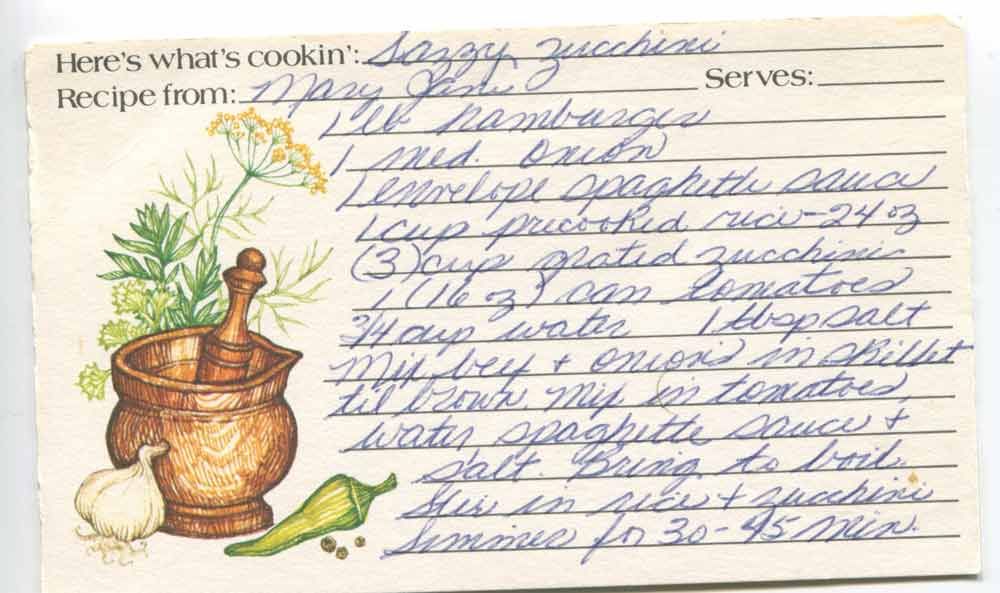 Here's what's cookin': Sazzy zucchini
Recipe from: Mary Jane Serves:
1 lb hamburger
1 med. onion
1 envelope spaghette sauce
1 cup precooked rice - 24 oz
(3) cup grated zucchini
1 (16 oz) can tomatoes
3/4 cup water 1 tbsp salt
Mix beef + onions in skillet
til brown. Mix in tomatoes,
water, spaghette sauce +
salt. Bring to boil.
Stir in rice + zucchini
Simmer for 30-45 min.